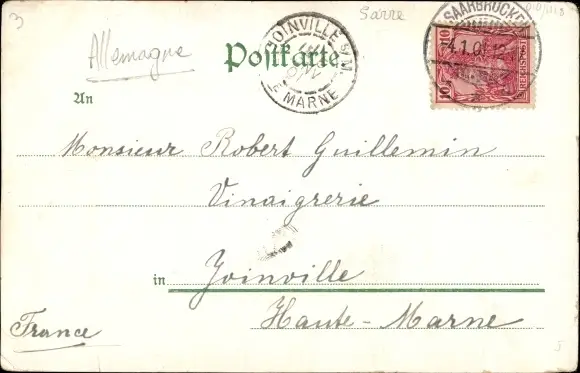 3
Sarre
Allemagne
Postkarte
JOINVILLE S/M
Hte MARNE
SAARBRÜCKEN
4.1.01
10 REICHSPOST 10
An
Monsieur Robert Guillemin
Vinaigrerie
in Joinville
Haute-Marne
France